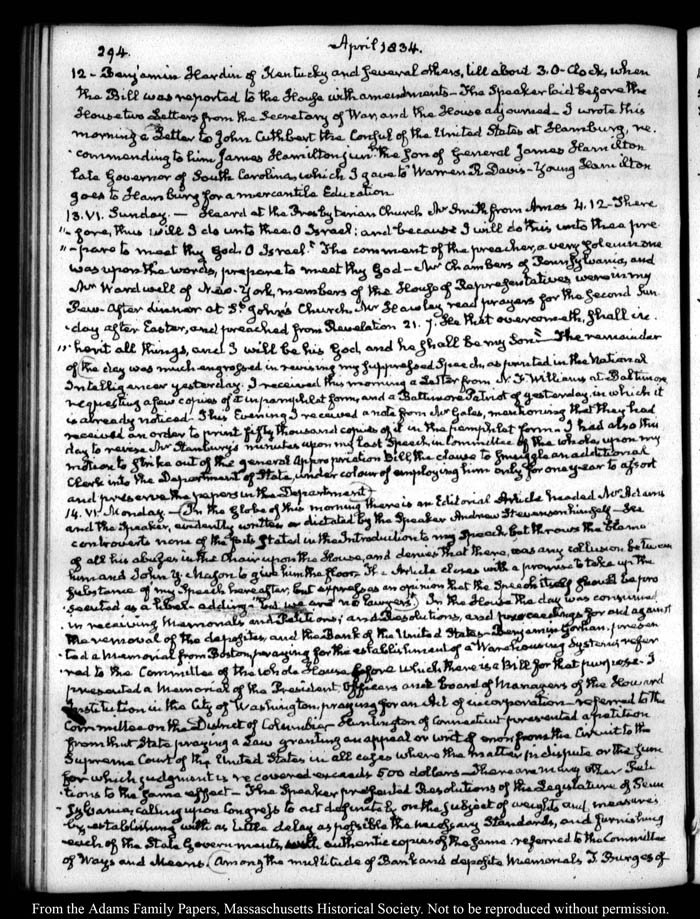 294.
April 1834.
12 - Benjamin Hardin of Kentucky and several others, till about 3. O-Clock, when
the Bill was reported to the House with amendments - The Speaker laid before the
House two Letters from the Secretary of War, and the House adjourned - I wrote this
morning a Letter to John Cuthbert the Consul of the United States at Hamburg, re-
-commending to him James Hamilton junr. the Son of General James Hamilton
late Governor of South Carolina, which I gave to Warren R. Davis - Young Hamilton
goes to Hamburg for a mercantile Education
13. VI. Sunday. — Heard at the Presbyterian Church Mr Smith from Amos 4. 12 - There
"-fore, thus will I do unto thee O Israel; and because I will do this unto thee pre-
"-pare to meet thy God, O Israel." The comment of the preacher, a very solemn one
was upon the words, prepare to meet thy God - Mr Chambers of Pennsylvania, and
Mr Wardwell of New-York, members of the House of Representatives, were in my
Pew. After dinner at St John's Church, Mr Hawley read prayers for the second Sun
-day after Easter, and preached from Revelation 21. 7. He that overcometh, shall in-
"-herit all things, and I will be his God, and he shall be my Son" The remainder
of the day was much engrossed in revising my suppressed Speech, as printed in the National
Intelligencer yesterday. I received this morning a Letter from N. F. Williams at Baltimore
requesting a few copies of it in pamphlet form, and a Baltimore Patriot of yesterday, in which it
is already noticed. This Evening I received a note from Mr Gales, mentioning that they had
received an order to print fifty thousand copies of it in the pamphlet form - I had also this
day to revise Mr Stansbury's minutes upon my last Speech in Committee of the whole, upon my
motion to strike out of the general Appropriation Bill, the clause to smuggle an additional
Clerk into the Department of State, under colour of employing him only for one year to assort
and preserve the papers in the Department
14. VI. Monday - In the Globe of this morning there is an Editorial Article headed Mr Adams
and the Speaker, evidently written or dictated by the Speaker Andrew Stevenson himself - He
controverts none of the facts stated in the Introduction to my Speech but throws the blame
of all his abuses in the Chair upon the House, and denies that there was any collusion between
him and John Y. Mason to give him the floor. The Article closes with a promise to take up the
substance of my Speech hereafter, but expresses an opinion that the Speech itself should be pro
secuted as a libel - adding "but we are no lawyers". In the House the day was consumed
in receiving Memorials and Petitions, and Resolutions, and proceedings for and against
the removal of the deposites, and the Bank of the United States - Benjamin Gorham, presen
-ted a Memorial from Boston, praying for the establishment of a Warehousing System; refer
red to the Committee of the whole House before which there is a Bill for that purpose. I
presented a Memorial of the President, Officers and board of Managers of the Howard
Institution in the City of Washington, praying for an Act of incorporation - referred to the
Committee on the District of Columbia - Huntington of Connecticut presented a petition
from that State praying a Law granting an appeal or writ of error from the Circuit to the
Supreme Court of the United States in all cases where the matter in dispute or the sum
for which judgment is recovered exceeds 500 dollars - There are many other Peti
-tions to the same effect - The Speaker presented Resolutions of the Legislature of Penn
-sylvania, calling upon Congress to act definitely on the subject of weights and measures
by establishing with as little delay as possible the necessary Standards, and furnishing
each of the State Governments, with authentic copies of the same. referred to the Committee
of Ways and Means. Among the multitude of Bank and deposite Memorials T. Burges of
From the Adams Family Papers, Massachusetts Historical Society. Not to be reproduced without permission.